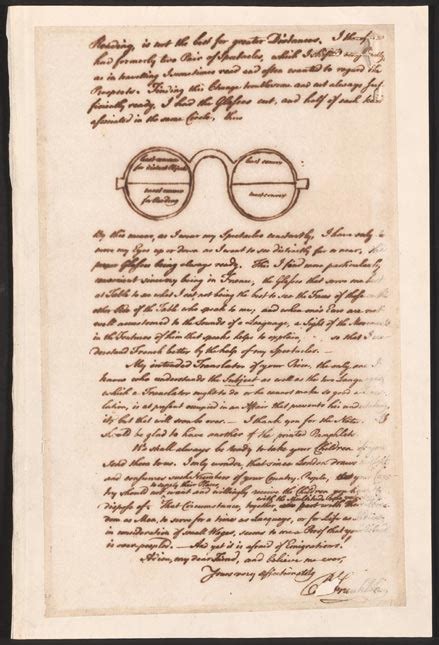 Reading, is not the best for greater Distances. I therefore
had formerly two Pair of Spectacles, which I shifted occasionally,
as in travelling I sometimes read and often wanted to regard the
Prospects. Finding this Change troublesome and not always suf-
ficiently ready, I had the Glasses cut, and half of each kind
associated in the same Circle, thus
least convex
for distant Objects
least convex
most convex
for Reading
most convex
By this means, as I wear my Spectacles constantly, I have only to
move my Eyes up or down as I want to see distinctly far or near, the
proper Glasses being always ready. This I find more particularly
convenient since my being in France, the Glasses that serve me best
at Table to see what I eat, not being the best to see the Faces of those on the
other Side of the Table who speak to me; and when one's Ears are not
well accustomed to the Sounds of a Language, a Sight of the Movements
in the Features of him that speaks helps to explain, so that I un-
derstand French better by the help of my Spectacles. —
My intended Translator of your Piece, the only one I
know who understands the Subject as well as the two Languages,
which a Translator ought to do or he cannot make so good a Trans-
lation, is at present occupied in an Affair that prevents his undertaking
it; but that will soon be over. — I thank you for the Notes. I
should be glad to have another of the printed Pamphlets.
We shall always be ready to take your Children if you
send them to us. I only wonder, that since London draws
and consumes such Numbers of your Country People, that your
to supply their Places
try should not want and willingly receive the Children you have to
dispose of. That Circumstance, together with the Multitude who
part with their Free-
dom as Men, to serve for a time as Lackeys, or for Life as
in consideration of small Wages, seems to me a Proof that your
is over-peopled. — And yet it is afraid of Emigrations.
Adieu, my dear Friend, and believe me ever,
Yours very affectionately
B Franklin